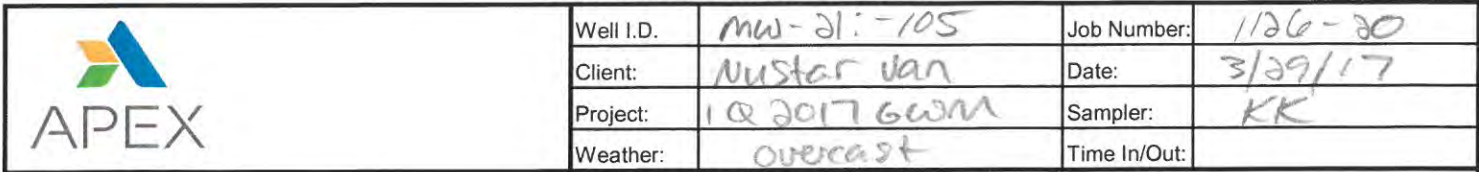 Well I.D. MW-21i-105 Job Number: 1126-20
Client: NuStar Van Date: 3/29/17
APEX
Project: 1Q 2017 GWM Sampler: KK
Weather: overcast Time In/Out: